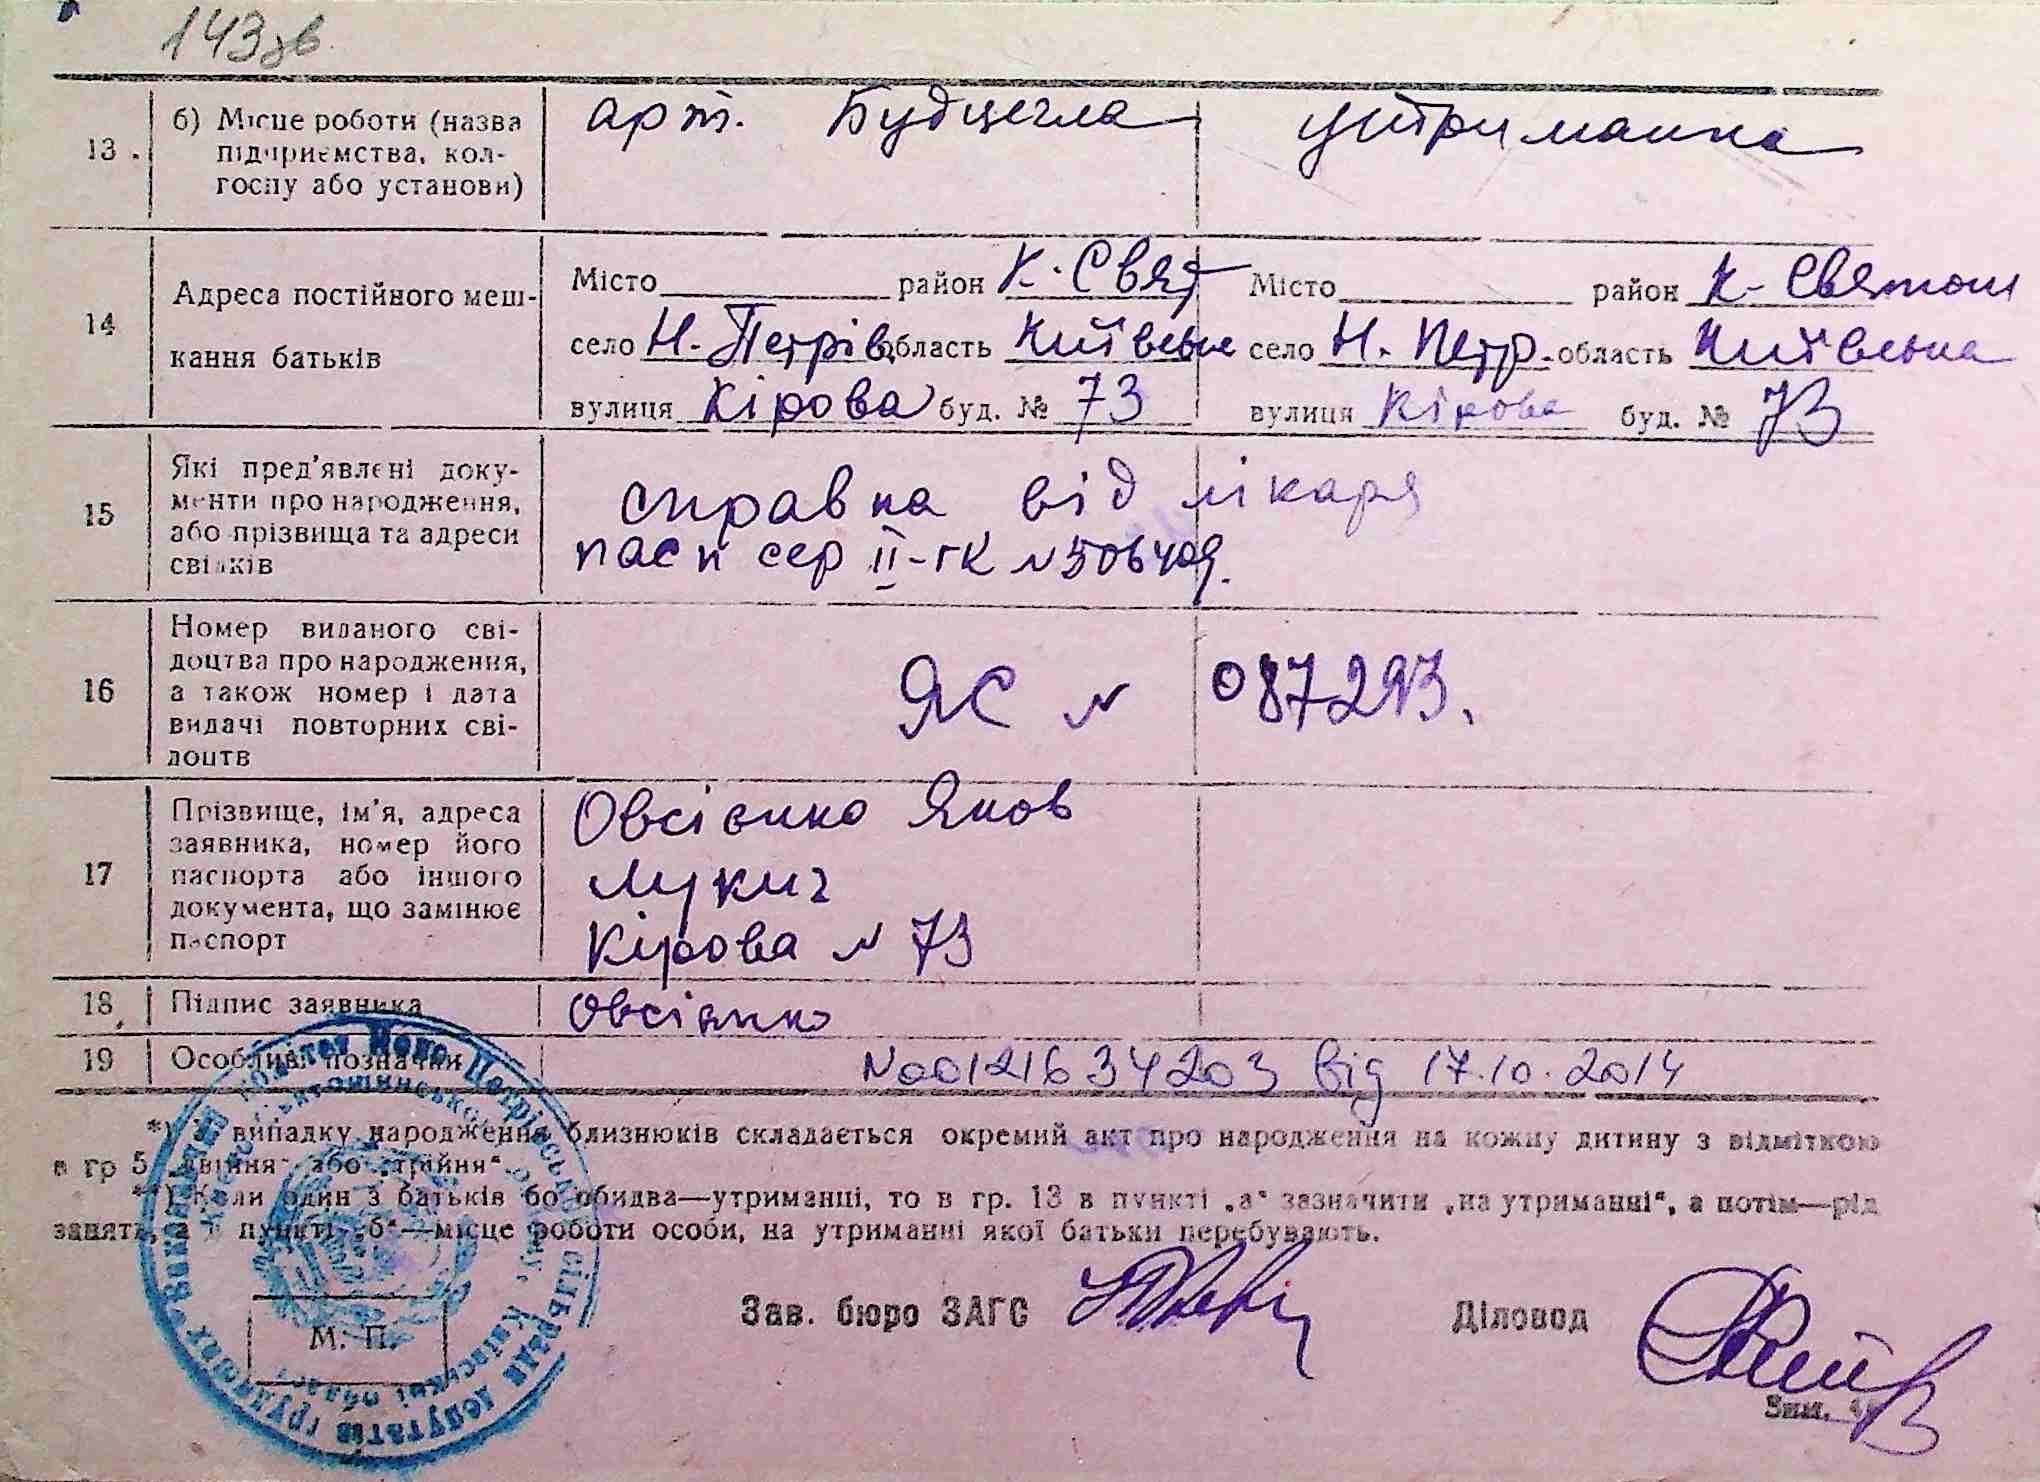 143 зв
13. б) Місце роботи (назва підприємства, колгоспу або установи) арт. Будцегла утриманка
14 Адреса постійного мешкання батьків
Місто район К. Свят Місто район К-Святош
село Н. Петрівц область Київське село Н. Петр. область Київська
вулиця Кірова буд. № 73 вулиця Кірова буд. № 73
15 Які пред'явлені документи про народження, або прізвища та адреси свідків
справка від лікаря
пасп сер II-ГК N 506409.
16 Номер виданого свідоцтва про народження, а також номер і дата видачі повторних свідоцтв
ЯС N 087293.
17 Прізвище, ім'я, адреса заявника, номер його паспорта або іншого документа, що замінює паспорт
Овсієнко Яков
Лукич
Кірова N 73
18 Підпис заявника Овсієнко
19 Особливі позначки N00121634203 від 17.10.2014
*) У випадку народження близнюків складається окремий акт про народження на кожну дитину з відміткою
в гр 5 „двійня“ або „трійня“.
**) Коли один з батьків бо обидва—утриманці, то в гр. 13 в пункті „а“ зазначити „на утриманні“, а потім—рід
занять, а в пункті „б“—місце роботи особи, на утриманні якої батьки перебувають.
Зав. бюро ЗАГС Діловод
М. П.
Виконавчий комітет Ново-Петрівської сільради депутатів трудящих
Київської області
Зам.